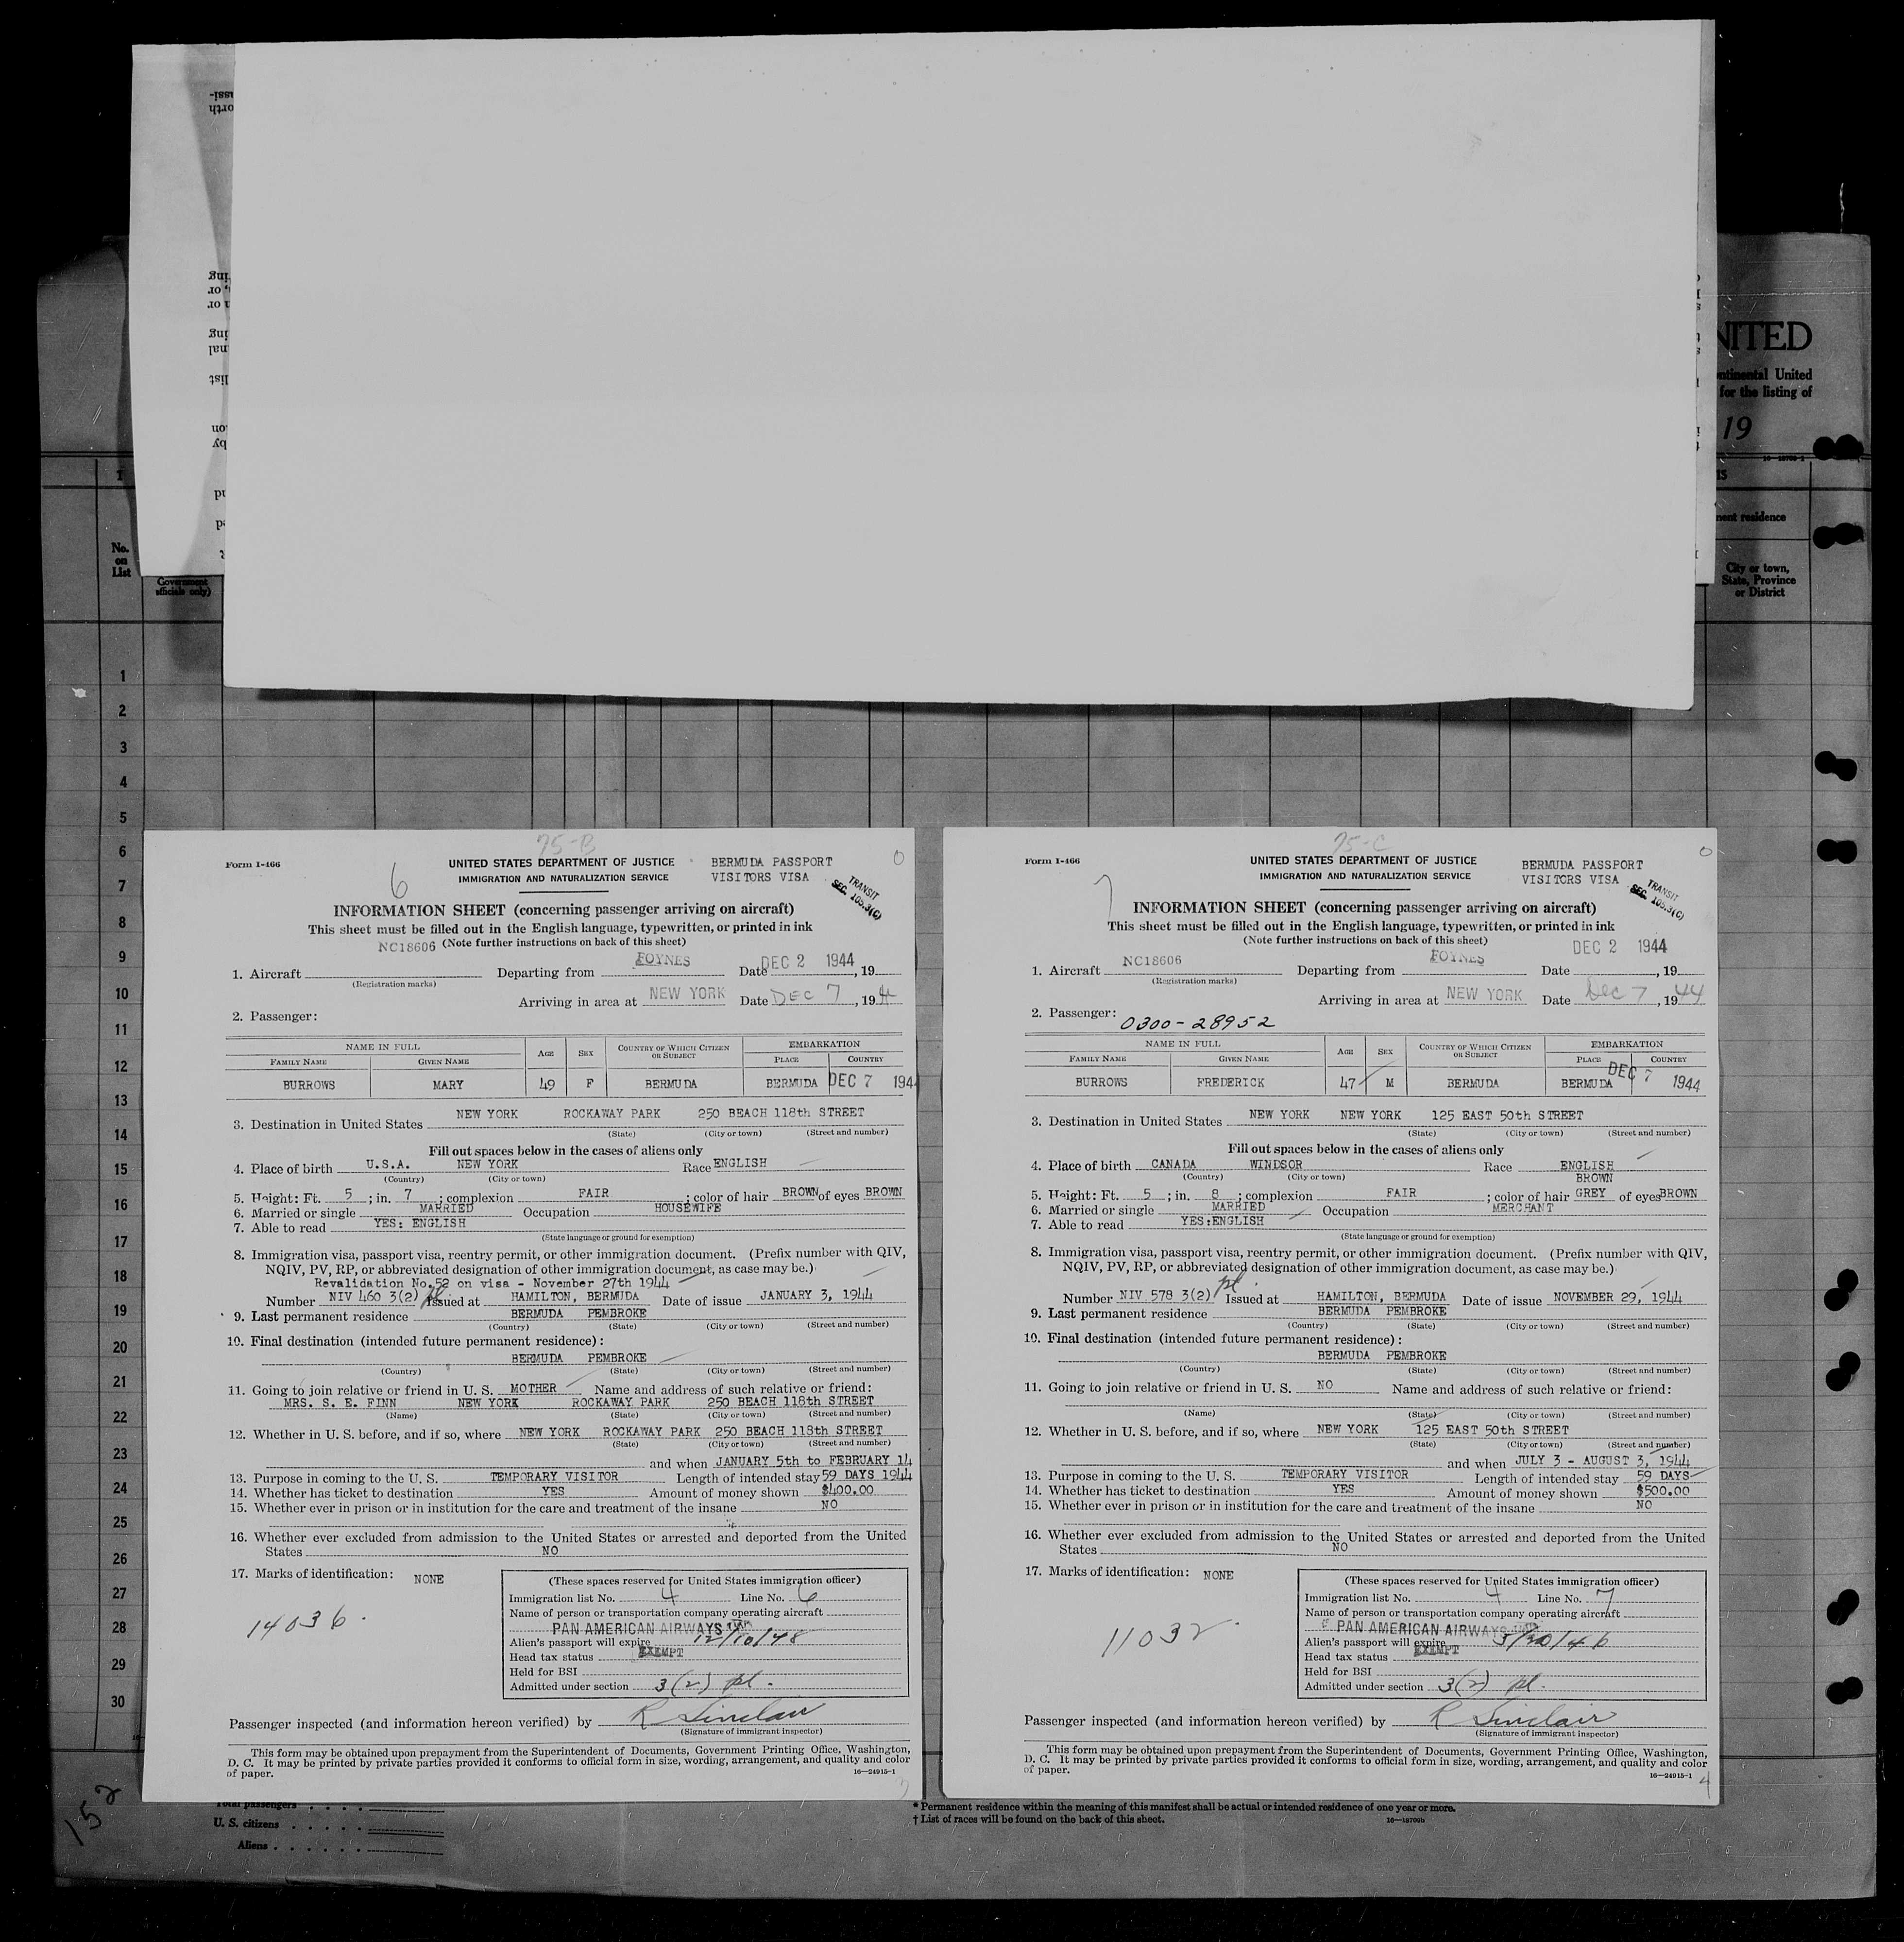 NITED
ontinental United
for the listing of
19
15
nent residence
City or town,
State, Province
or District
No.
on
List
Government
officials only)
1
2
3
4
5
6
7
8
9
10
11
12
13
14
15
16
17
18
19
20
21
22
23
24
25
26
27
28
29
30
75-B
Form I-466
6
UNITED STATES DEPARTMENT OF JUSTICE
IMMIGRATION AND NATURALIZATION SERVICE
BERMUDA PASSPORT
VISITORS VISA
0
TRANSIT
SEC. 105.3(C)
INFORMATION SHEET (concerning passenger arriving on aircraft)
This sheet must be filled out in the English language, typewritten, or printed in ink
NC18606 (Note further instructions on back of this sheet)
1. Aircraft Departing from FOYNES Date DEC 2 1944, 19
(Registration marks)
Arriving in area at NEW YORK Date DEC 7, 194
2. Passenger:
NAME IN FULL AGE SEX COUNTRY OF WHICH CITIZEN OR SUBJECT EMBARKATION
FAMILY NAME GIVEN NAME PLACE COUNTRY
BURROWS MARY 49 F BERMUDA BERMUDA DEC 7 194
NEW YORK ROCKAWAY PARK 250 BEACH 118th STREET
3. Destination in United States
(State) (City or town) (Street and number)
Fill out spaces below in the cases of aliens only
4. Place of birth U.S.A. NEW YORK Race ENGLISH
(Country) (City or town)
5. Height: Ft. 5 ; in. 7 ; complexion FAIR ; color of hair BROWN of eyes BROWN
6. Married or single MARRIED Occupation HOUSEWIFE
7. Able to read YES: ENGLISH
(State language or ground for exemption)
8. Immigration visa, passport visa, reentry permit, or other immigration document. (Prefix number with QIV,
NQIV, PV, RP, or abbreviated designation of other immigration document, as case may be.)
Revalidation No.52 on visa - November 27th 1944
Number NIV 460 3(2) pl Issued at HAMILTON, BERMUDA Date of issue JANUARY 3, 1944
9. Last permanent residence BERMUDA PEMBROKE
(Country) (State) (City or town) (Street and number)
10. Final destination (intended future permanent residence):
BERMUDA PEMBROKE
(Country) (State) (City or town) (Street and number)
11. Going to join relative or friend in U. S. MOTHER Name and address of such relative or friend:
MRS. S. E. FINN NEW YORK ROCKAWAY PARK 250 BEACH 118th STREET
(Name) (State) (City or town) (Street and number)
12. Whether in U. S. before, and if so, where NEW YORK ROCKAWAY PARK 250 BEACH 118th STREET
(State) (City or town) (Street and number)
and when JANUARY 5th to FEBRUARY 14
13. Purpose in coming to the U. S. TEMPORARY VISITOR Length of intended stay 59 DAYS 1944
14. Whether has ticket to destination YES Amount of money shown $400.00
15. Whether ever in prison or in institution for the care and treatment of the insane NO
16. Whether ever excluded from admission to the United States or arrested and deported from the United
States NO
17. Marks of identification: NONE
14036
(These spaces reserved for United States immigration officer)
Immigration list No. 4 Line No. 6
Name of person or transportation company operating aircraft
PAN AMERICAN AIRWAYS
Alien's passport will expire 12/10/48
Head tax status EXEMPT
Held for BSI
Admitted under section 3(2) pl.
Passenger inspected (and information hereon verified) by R Sinclair
(Signature of immigrant inspector)
This form may be obtained upon prepayment from the Superintendent of Documents, Government Printing Office, Washington,
D. C. It may be printed by private parties provided it conforms to official form in size, wording, arrangement, and quality and color
of paper.
16—24915-1
75-C
Form I-466
7
UNITED STATES DEPARTMENT OF JUSTICE
IMMIGRATION AND NATURALIZATION SERVICE
BERMUDA PASSPORT
VISITORS VISA
0
TRANSIT
SEC. 105.3(C)
INFORMATION SHEET (concerning passenger arriving on aircraft)
This sheet must be filled out in the English language, typewritten, or printed in ink
(Note further instructions on back of this sheet) DEC 2 1944
1. Aircraft NC18606 Departing from FOYNES Date , 19
(Registration marks)
Arriving in area at NEW YORK Date Dec 7, 1944
2. Passenger: 0300-28952
NAME IN FULL AGE SEX COUNTRY OF WHICH CITIZEN OR SUBJECT EMBARKATION
FAMILY NAME GIVEN NAME PLACE COUNTRY
BURROWS FREDERICK 47 M BERMUDA BERMUDA DEC 7 1944
3. Destination in United States NEW YORK NEW YORK 125 EAST 50th STREET
(State) (City or town) (Street and number)
Fill out spaces below in the cases of aliens only
4. Place of birth CANADA WINDSOR Race ENGLISH
(Country) (City or town) BROWN
5. Height: Ft. 5 ; in. 8 ; complexion FAIR ; color of hair GREY of eyes BROWN
6. Married or single MARRIED Occupation MERCHANT
7. Able to read YES:ENGLISH
(State language or ground for exemption)
8. Immigration visa, passport visa, reentry permit, or other immigration document. (Prefix number with QIV,
NQIV, PV, RP, or abbreviated designation of other immigration document, as case may be.)
Number NIV 578 3(2) pl Issued at HAMILTON, BERMUDA Date of issue NOVEMBER 29, 1944
9. Last permanent residence BERMUDA PEMBROKE
(Country) (State) (City or town) (Street and number)
10. Final destination (intended future permanent residence):
BERMUDA PEMBROKE
(Country) (State) (City or town) (Street and number)
11. Going to join relative or friend in U. S. NO Name and address of such relative or friend:
(Name) (State) (City or town) (Street and number)
12. Whether in U. S. before, and if so, where NEW YORK 125 EAST 50th STREET
(State) (City or town) (Street and number)
and when JULY 3 - AUGUST 3, 1944
13. Purpose in coming to the U. S. TEMPORARY VISITOR Length of intended stay 59 DAYS
14. Whether has ticket to destination YES Amount of money shown $500.00
15. Whether ever in prison or in institution for the care and treatment of the insane NO
16. Whether ever excluded from admission to the United States or arrested and deported from the United
States NO
17. Marks of identification: NONE
11032
(These spaces reserved for United States immigration officer)
Immigration list No. 4 Line No. 7
Name of person or transportation company operating aircraft
PAN AMERICAN AIRWAYS
Alien's passport will expire 5/30/46
Head tax status EXEMPT
Held for BSI
Admitted under section 3(2) pl.
Passenger inspected (and information hereon verified) by R Sinclair
(Signature of immigrant inspector)
This form may be obtained upon prepayment from the Superintendent of Documents, Government Printing Office, Washington,
D. C. It may be printed by private parties provided it conforms to official form in size, wording, arrangement, and quality and color
of paper.
16—24915-1
4
152
Total passengers
U. S. citizens
Aliens
* Permanent residence within the meaning of this manifest shall be actual or intended residence of one year or more.
† List of races will be found on the back of this sheet.